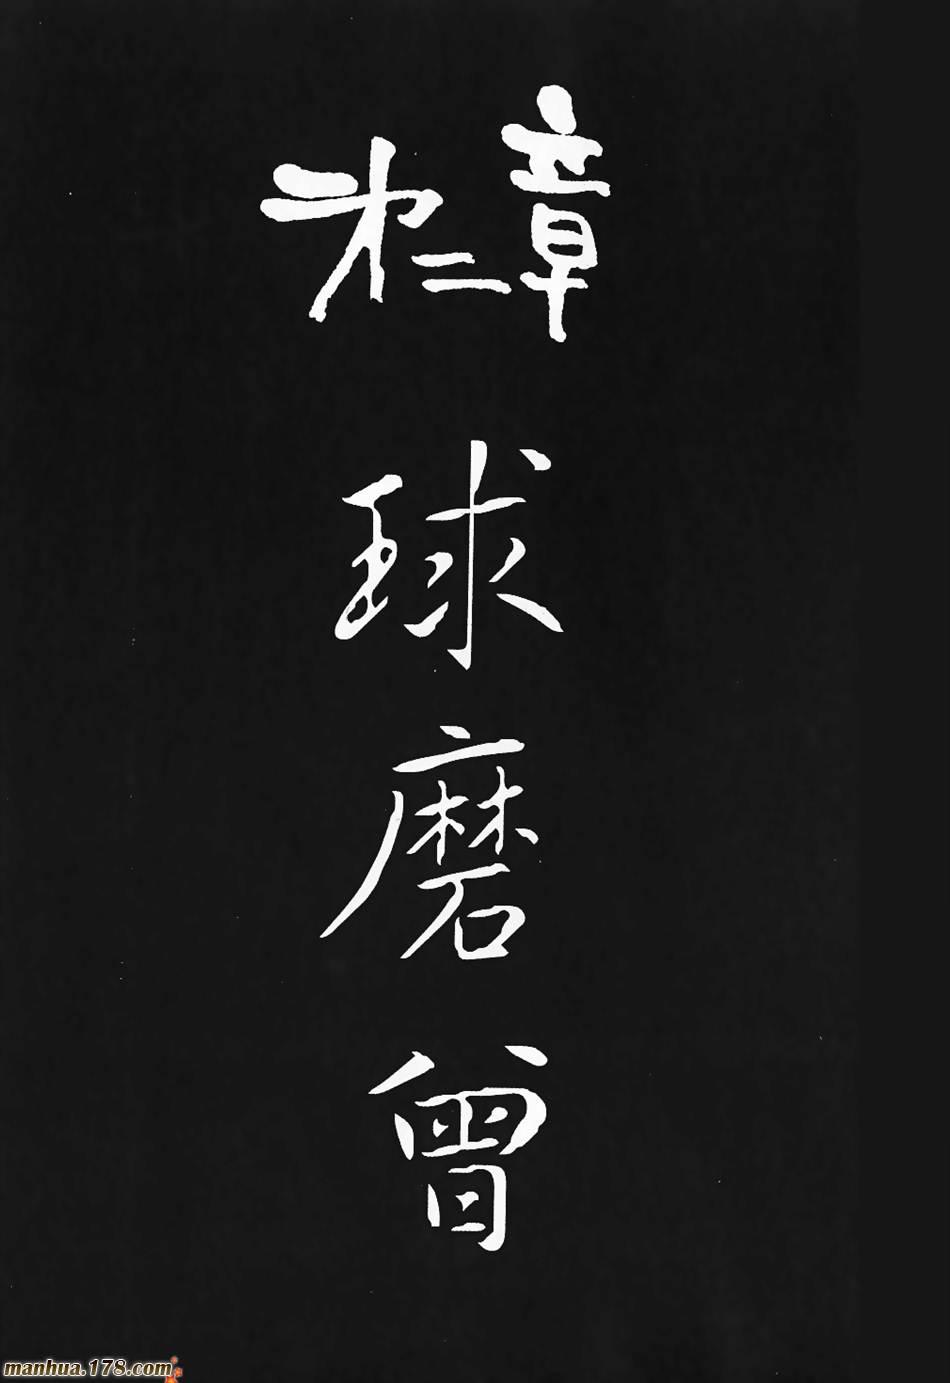 第二章
球磨曾
manhua.178.com